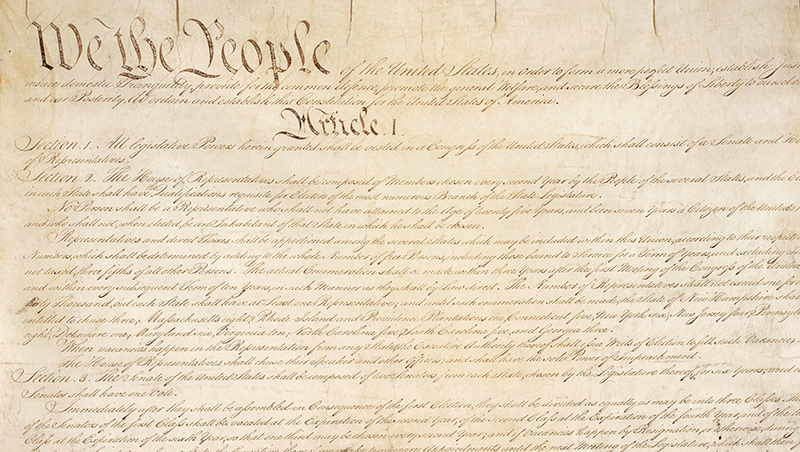 We the People of the United States, in Order to form a more perfect Union, establish Just
insure domestic Tranquility, provide for the common defence, promote the general Welfare, and secure the Blessings of Liberty to ourselves
and our Posterity, do ordain and establish this Constitution for the United States of America.
Article. I.
Section. 1. All legislative Powers herein granted shall be vested in a Congress of the United States, which shall consist of a Senate and Hou
of Representatives.
Section. 2. The House of Representatives shall be composed of Members chosen every second Year by the People of the several States, and the El
in each State shall have the Qualifications requisite for Electors of the most numerous Branch of the State Legislature.
No Person shall be a Representative who shall not have attained to the Age of twenty five Years, and been seven Years a Citizen of the United
and who shall not, when elected, be an Inhabitant of that State in which he shall be chosen.
Representatives and direct Taxes shall be apportioned among the several States which may be included within this Union, according to their respect
Numbers, which shall be determined by adding to the whole Number of free Persons, including those bound to Service for a Term of Years, and excluding
not taxed, three fifths of all other Persons. The actual Enumeration shall be made within three Years after the first Meeting of the Congress of the United
and within every subsequent Term of ten Years, in such Manner as they shall by Law direct. The Number of Representatives shall not exceed one for
thirty Thousand, but each State shall have at Least one Representative; and until such enumeration shall be made, the State of New Hampshire shall
entitled to chuse three, Massachusetts eight, Rhode Island and Providence Plantations one, Connecticut five, New York six, New Jersey four, Pennsylv
eight, Delaware one, Maryland six, Virginia ten, North Carolina five, South Carolina five, and Georgia three.
When vacancies happen in the Representation from any State, the Executive Authority thereof shall issue Writs of Election to fill such Vacancies.
The House of Representatives shall chuse their Speaker and other Officers; and shall have the sole Power of Impeachment.
Section. 3. The Senate of the United States shall be composed of two Senators from each State, chosen by the Legislature thereof, for six Years; and
Senator shall have one Vote.
Immediately after they shall be assembled in Consequence of the first Election, they shall be divided as equally as may be into three Classes. The
of the Senators of the first Class shall be vacated at the Expiration of the second Year, of the second Class at the Expiration of the fourth Year, and of the
Class at the Expiration of the sixth Year, so that one third may be chosen every second Year; and if Vacancies happen by Resignation, or otherwise, during
temporary Appointments until the next Meeting of the Legislature, which shall then